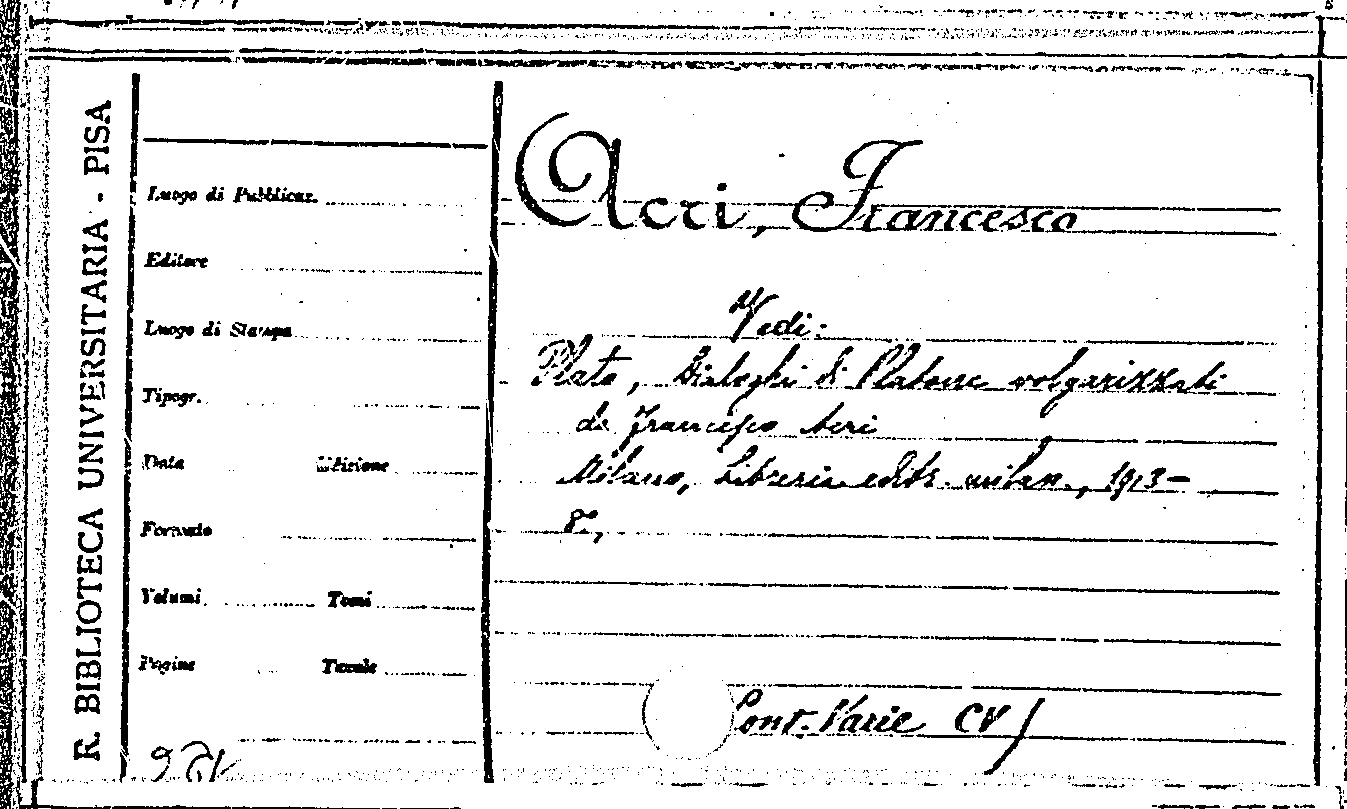 R. BIBLIOTECA UNIVERSITARIA - PISA
Luogo di Pubblicaz.
Editore
Luogo di Stampa
Tipogr.
Data Edizione
Formato
Volumi Tomi
Pagine Tavole
Acri, Francesco
Vedi:
Plato, Dialoghi di Platone volgarizzati
da Francesco Acri
Milano, Libreria editr. milan., 1913-
8°,
Cont. Varie CV